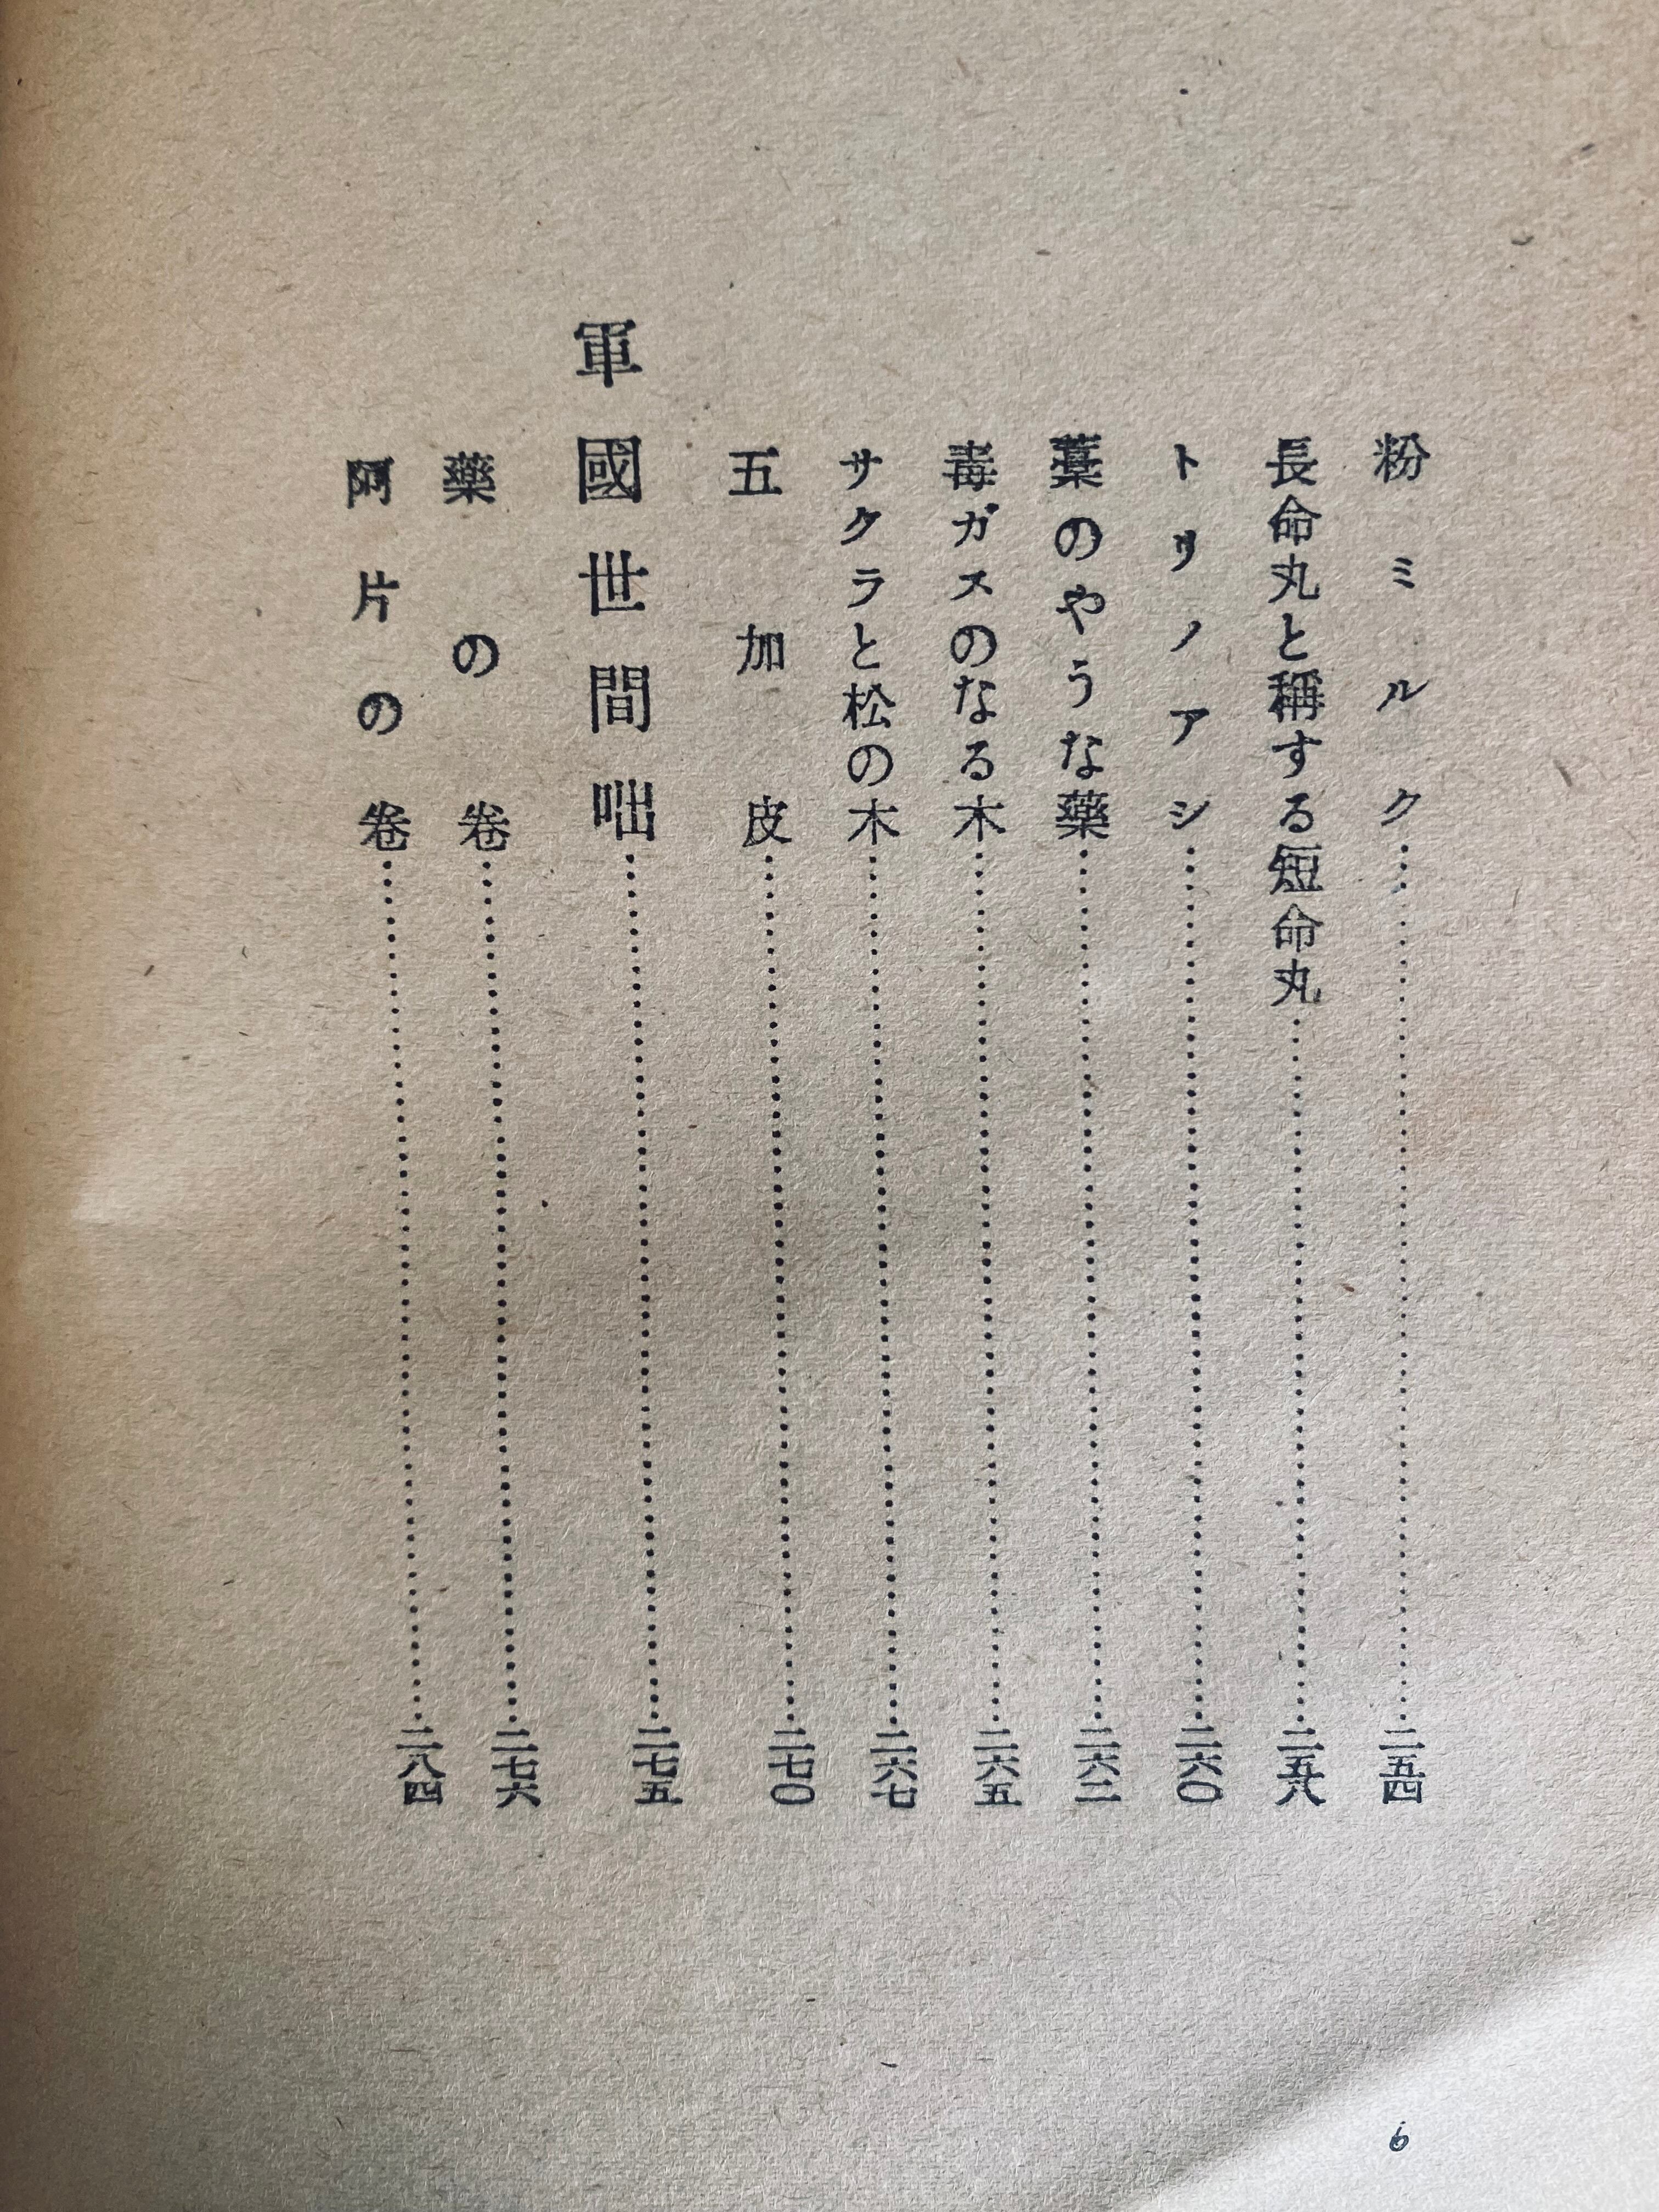 粉ミルク……………………二五四
長命丸と稱する短命丸……………………二五八
トリノアシ……………………二六〇
藁のやうな藥……………………二六二
毒ガスのなる木……………………二六五
サクラと松の木……………………二六七
五加皮……………………二七〇
軍國世間咄……………………二七五
藥の卷……………………二七六
阿片の卷……………………二八四
6